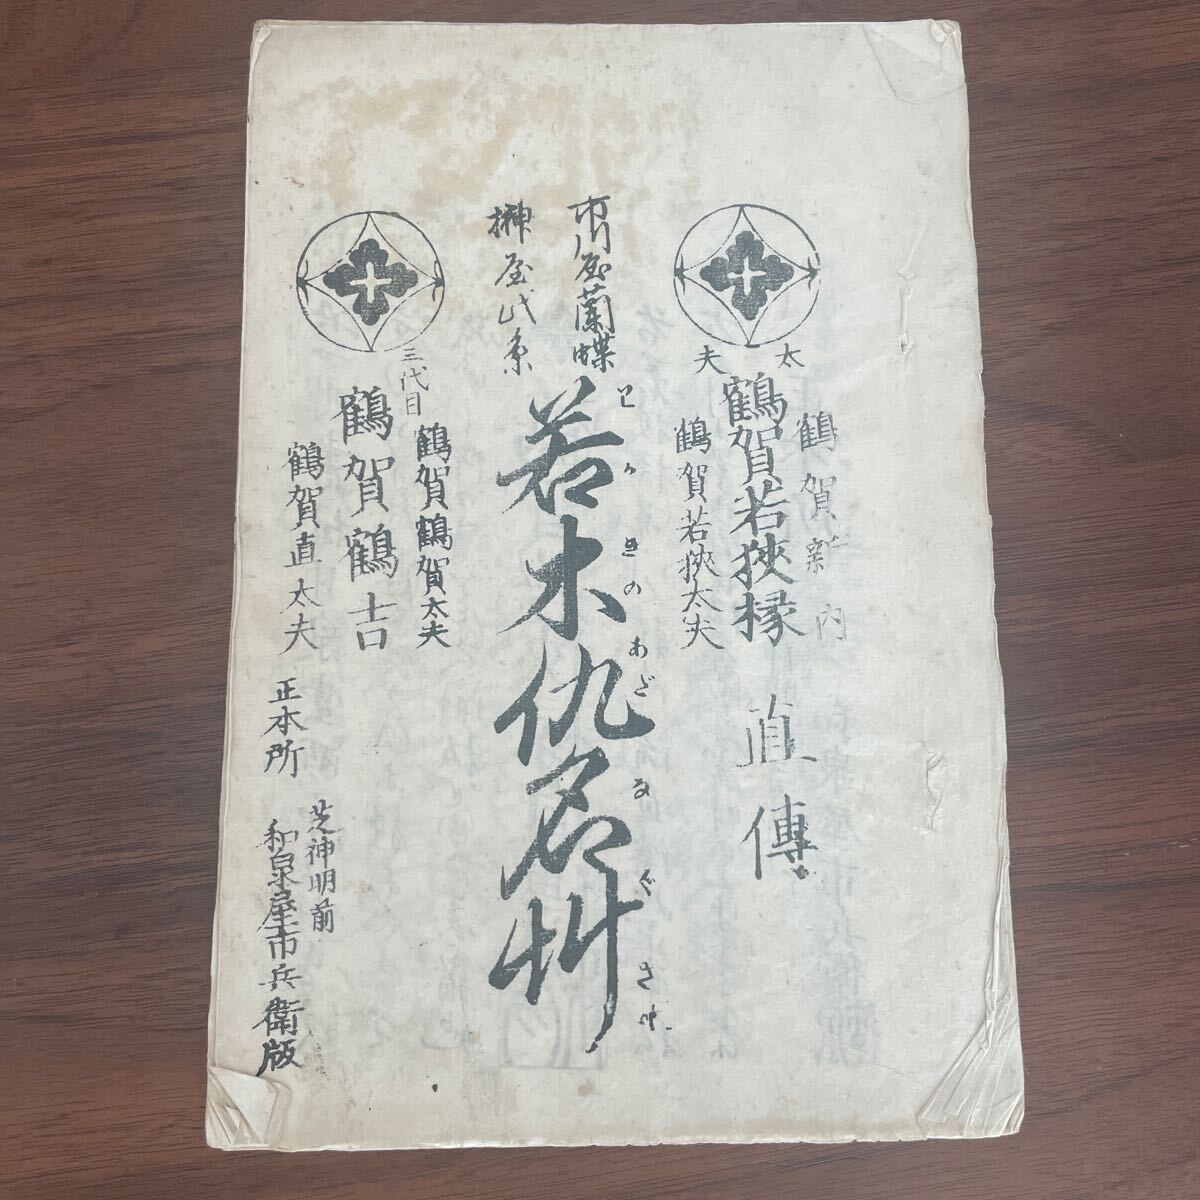 太夫
鶴賀新内
鶴賀若狹掾
鶴賀若狹太夫
直傳
市川屋蘭蝶
榊屋此糸
若木仇名艸
わかきのあだなぐさ
三代目
鶴賀鶴賀太夫
鶴賀鶴吉
鶴賀直太夫
正本所
芝神明前
和泉屋市兵衛版